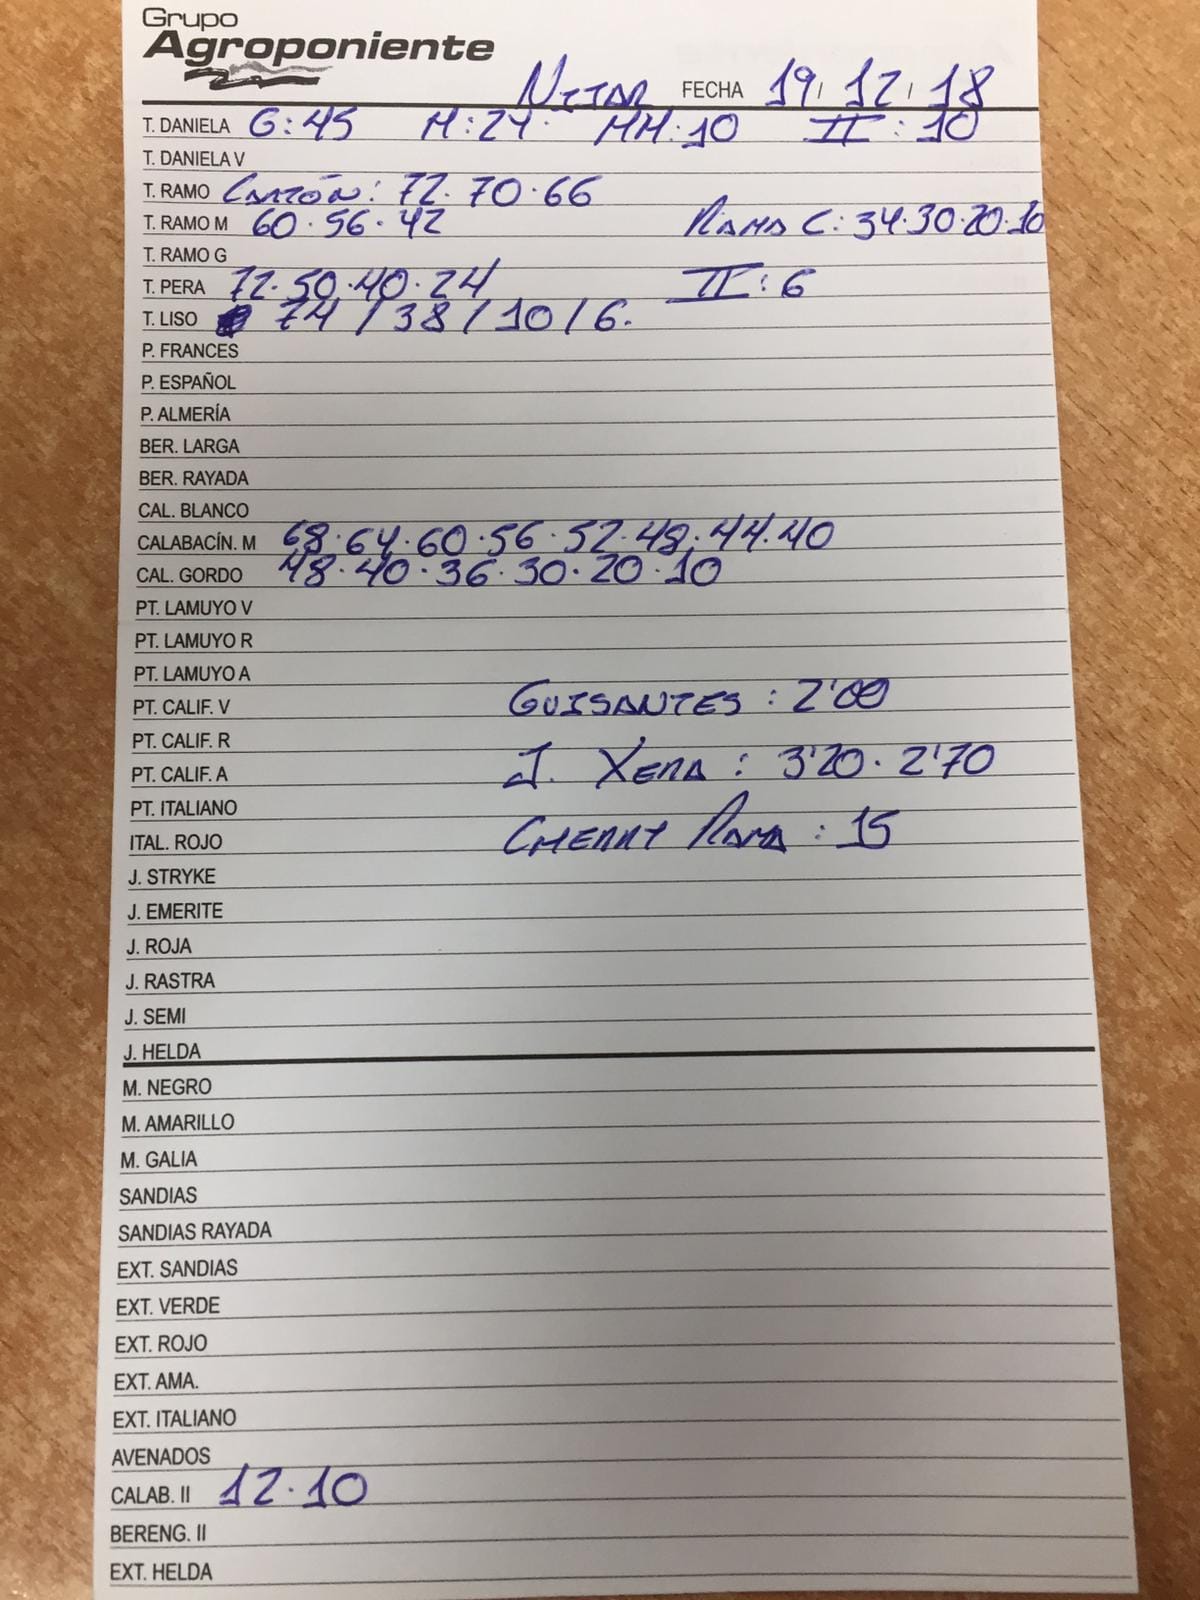 Grupo
Agroponiente
NIJAR FECHA 19/12/18
T. DANIELA G:45 M:24 MM:10 II:10
T. DANELA V
T. RAMO CARTÓN: 72.70.66
T. RAMO M 60.56.42 RAMA C: 34.30.20.10
T. RAMO G
T. PERA 72.50.40.24 II:6
T. LISO 74/38/10/6.
P. FRANCES
P. ESPAÑOL
P. ALMERÍA
BER. LARGA
BER. RAYADA
CAL. BLANCO
CALABACÍN. M 68.64.60.56.52.48.44.40
CAL. GORDO 48.40.36.30.20.10
PT. LAMUYO V
PT. LAMUYO R
PT. LAMUYO A
PT. CALIF. V GUISANTES: 2'00
PT. CALIF. R
PT. CALIF. A J. XERA: 3'20.2'70
PT. ITALIANO
ITAL. ROJO CHERRY RAMA: 15
J. STRYKE
J. EMERITE
J. ROJA
J. RASTRA
J. SEMI
J. HELDA
M. NEGRO
M. AMARILLO
M. GALIA
SANDIAS
SANDIAS RAYADA
EXT. SANDIAS
EXT. VERDE
EXT. ROJO
EXT. AMA.
EXT. ITALIANO
AVENADOS
CALAB. II 12.10
BERENG. II
EXT. HELDA